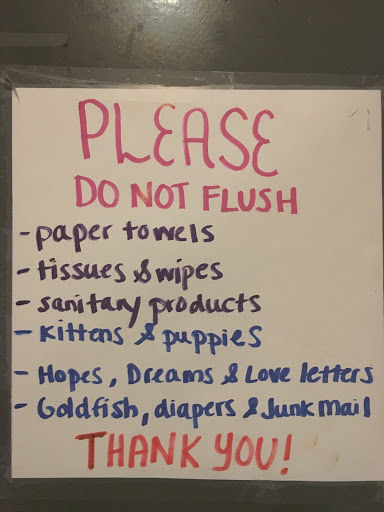 PLEASE
DO NOT FLUSH
- paper towels
- tissues & wipes
- sanitary products
- Kittens & puppies
- Hopes, Dreams & Love letters
- Goldfish, diapers & Junk Mail
THANK YOU!